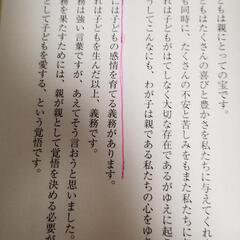 もは親にとっての宝です。
どもはたくさんの喜びと豊かさを私たちに与えてくれ
も同時に、たくさんの不安と苦しみをもまた私たちに
れは子どもがはてしなく大切な存在であるがゆえに起こ
うしてこんなにも、わが子は親である私たちの心をゆ
には子どもの感情を育てる義務があります。
れは子どもを生んだ以上、義務です。
務は強い言葉ですが、あえてそう言おうと思いました。
務を果たすためには、親が親として覚悟を決める必要が
として子どもを愛する、という覚悟です。